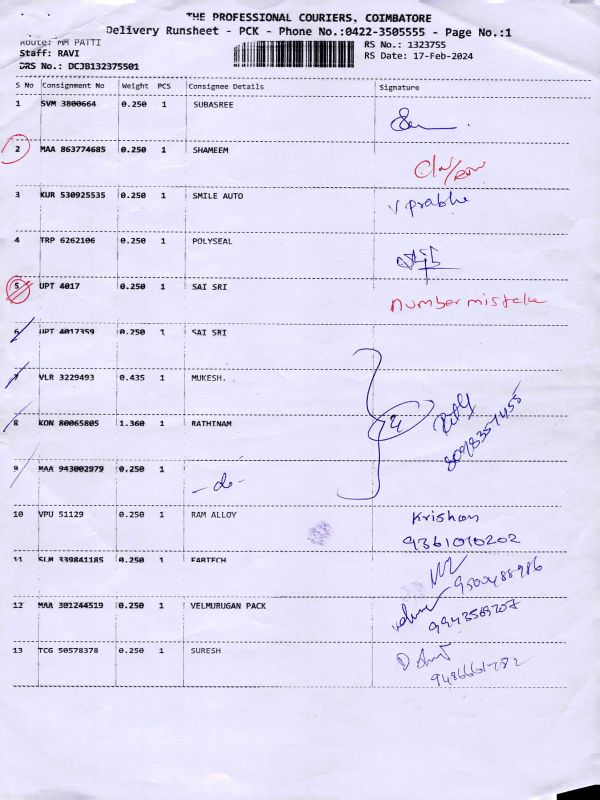 THE PROFESSIONAL COURIERS, COIMBATORE
Delivery Runsheet - PCK - Phone No.:0422-3505555 - Page No.:1
Route: MM PATTI
Staff: RAVI
DRS No.: DCJB132375501
RS No.: 1323755
RS Date: 17-Feb-2024
S No Consignment No Weight PCS Consignee Details Signature
1 SVM 3800664 0.250 1 SUBASREE
2 MAA 863774685 0.250 1 SHAMEEM
3 KUR 530925535 0.250 1 SMILE AUTO V prabhu
4 TRP 6262106 0.250 1 POLYSEAL
5 UPT 4017 0.250 1 SAI SRI number mistake
6 UPT 4017359 0.250 1 SAI SRI
7 VLR 3229493 0.435 1 MUKESH.
8 KON 80065805 1.360 1 RATHINAM
9 MAA 943002979 0.250 1 -do-
10 VPU 51129 0.250 1 RAM ALLOY Krishan
9361010202
11 SLM 339841185 0.250 1 FABTECH
12 MAA 301244519 0.250 1 VELMURUGAN PACK
13 TCG 50578378 0.250 1 SURESH